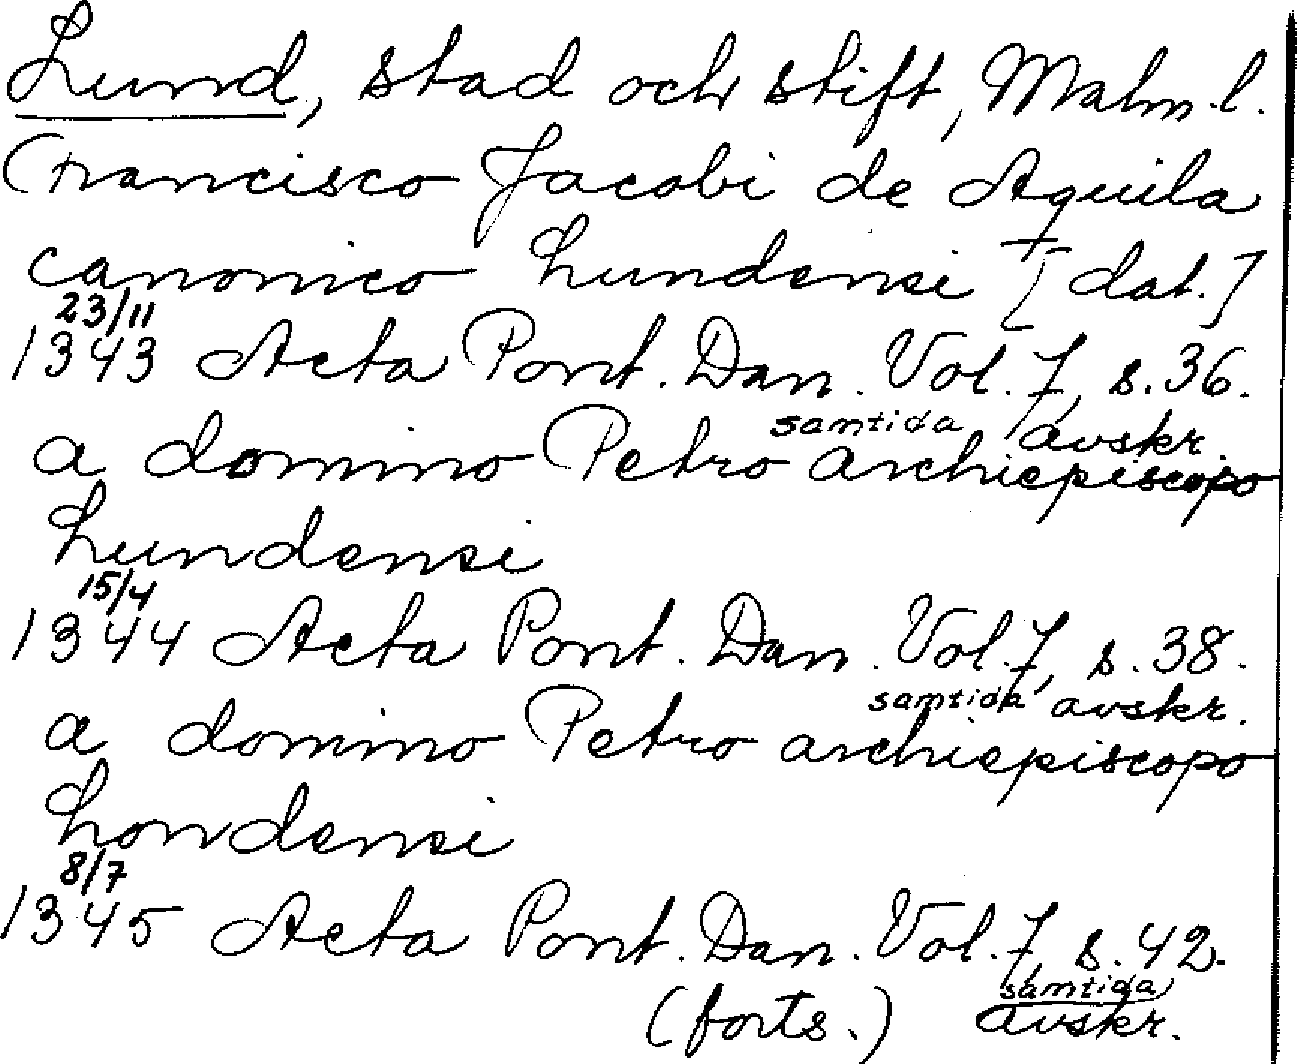 Lund, stad och stift, Malm.l.
Francisco Jacobi de Aquila
canonico Lundensi [dat.]
23/11
1343 Acta Pont. Dan. Vol. 7, s. 36.
samtida avskr.
a domino Petro archiepiscopo
Lundensi
15/4
1344 Acta Pont. Dan. Vol. 7, s. 38.
samtida avskr.
a domino Petro archiepiscopo
Londensi
8/7
1345 Acta Pont. Dan. Vol. 7, s. 42.
samtida
(forts.) avskr.